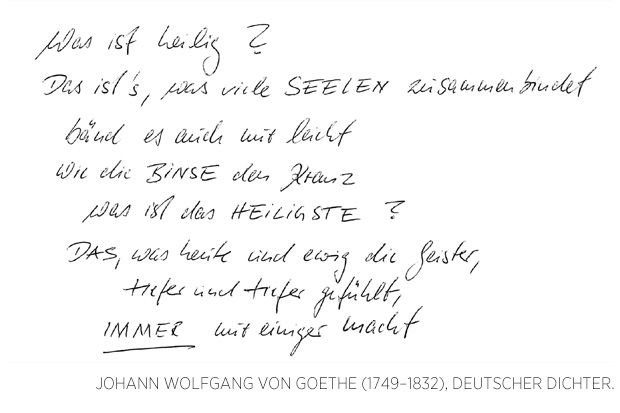 Was ist heilig?
Das ist's, was viele SEELEN zusammenbindet
bänd es auch nur leicht
wie die BINSE den Kranz
was ist das HEILIGSTE?
DAS, was heute und ewig die Geister,
tiefer und tiefer gefühlt,
IMMER nur einiger macht
JOHANN WOLFGANG VON GOETHE (1749–1832), DEUTSCHER DICHTER.